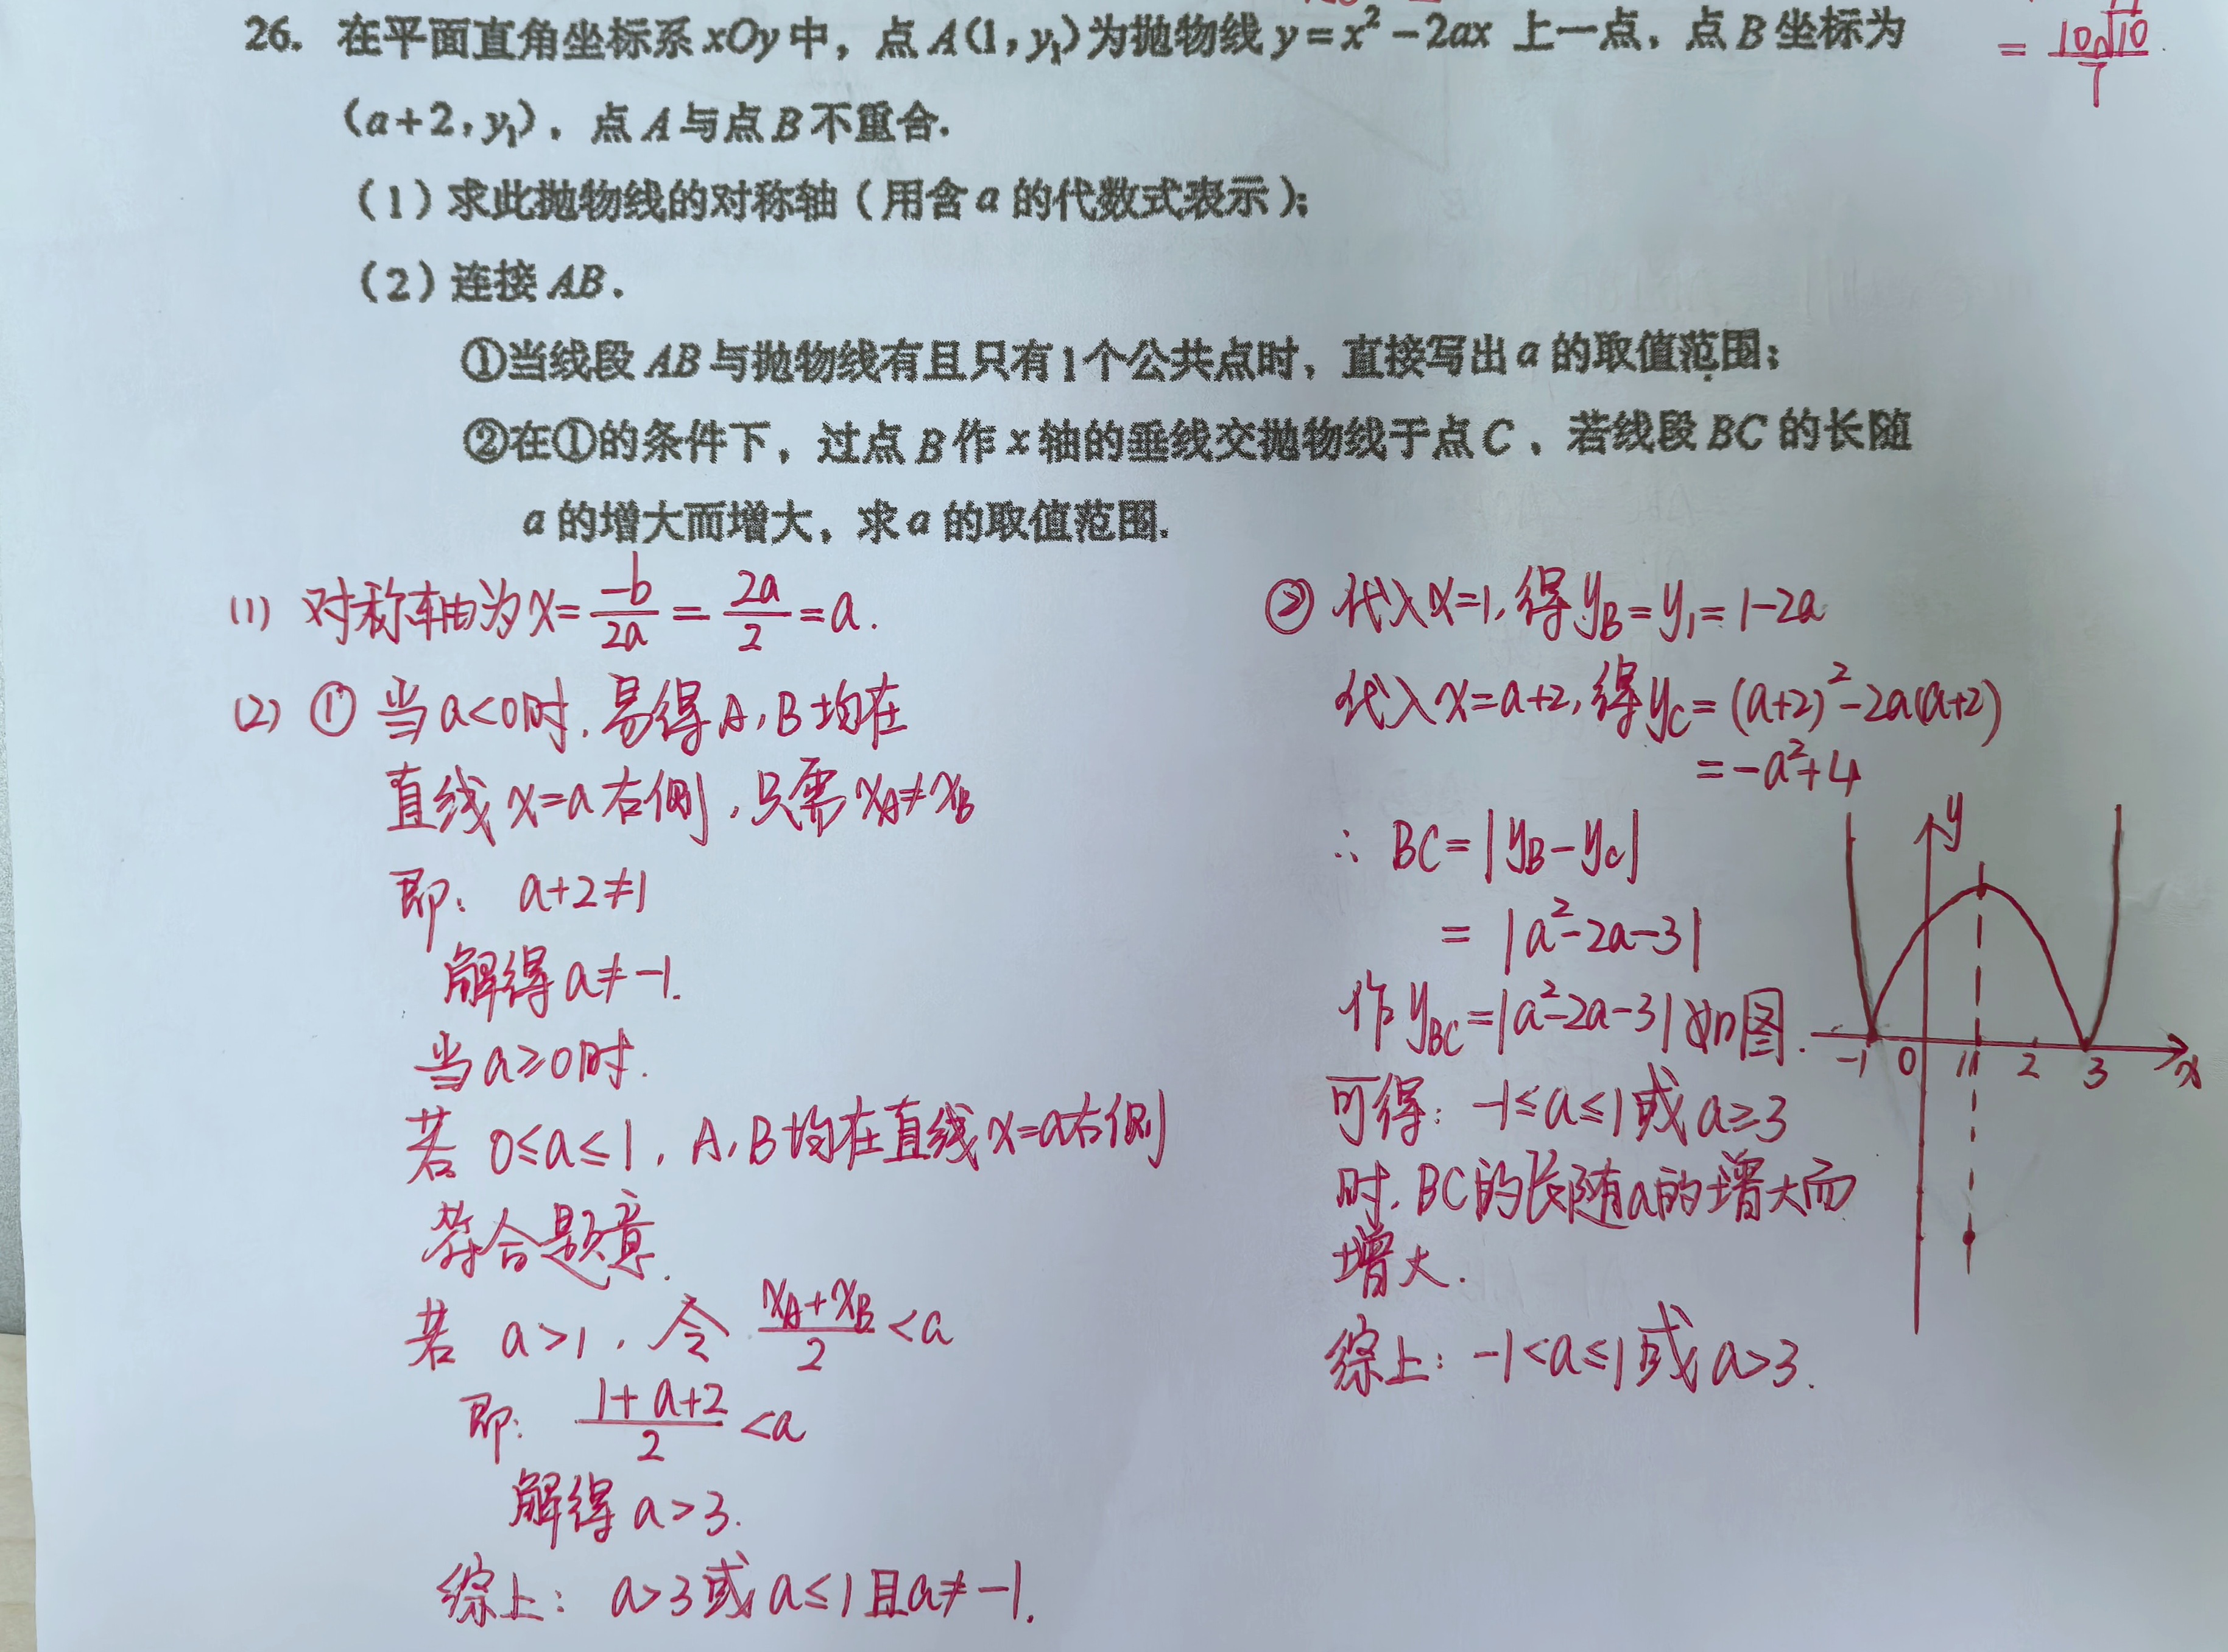 26. 在平面直角坐标系xOy中，点A(1，y₁)为抛物线y=x²－2ax 上一点，点B坐标为
(a+2，y₁)，点A与点B不重合.
(1)求此抛物线的对称轴(用含a的代数式表示)；
(2)连接AB.
①当线段AB与抛物线有且只有1个公共点时，直接写出a的取值范围；
②在①的条件下，过点B作x轴的垂线交抛物线于点C，若线段BC的长随
a的增大而增大，求a的取值范围.
= 10√10/7
(1) 对称轴为x=-b/2a=2a/2=a.
(2) ① 当a<0时,易得A,B均在
直线x=a右侧,只需x_A≠x_B
即: a+2≠1
解得a≠-1.
当a≥0时.
若 0≤a≤1, A,B均在直线x=a右侧
符合题意.
若 a>1, 令 (x_A+x_B)/2<a
即: (1+a+2)/2<a
解得a>3.
综上: a>3或a≤1且a≠-1.
② 代入x=1,得y_B=y₁=1-2a
代入x=a+2,得y_C=(a+2)²-2a(a+2)
=-a²+4
∴ BC=|y_B-y_C|
=|a²-2a-3|
作y_BC=|a²-2a-3|如图.
可得: -1≤a≤1或a≥3
时,BC的长随a的增大而
增大.
综上: -1<a≤1或a>3.
y
-1 0 1 2 3 x